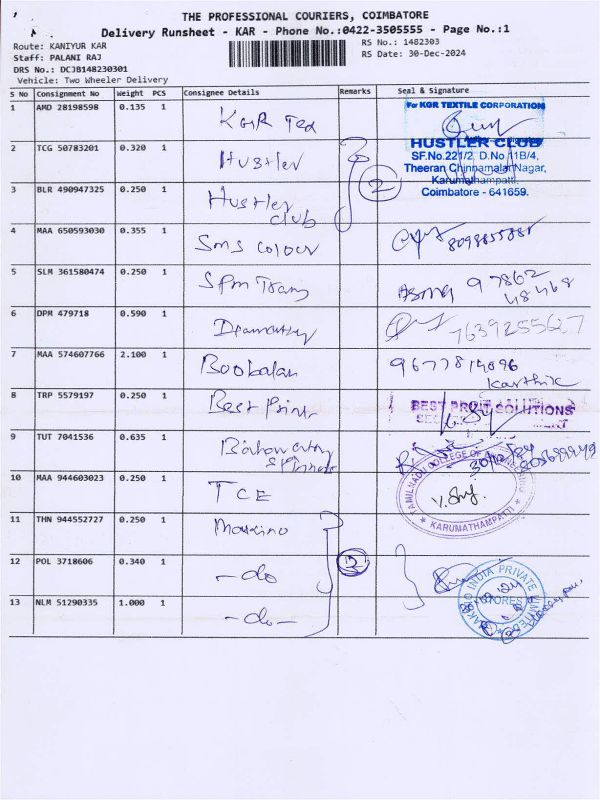 THE PROFESSIONAL COURIERS, COIMBATORE
Delivery Runsheet - KAR - Phone No.:0422-3505555 - Page No.:1
Route: KANIYUR KAR
RS No.: 1482303
Staff: PALANI RAJ
RS Date: 30-Dec-2024
DRS No.: DCJB148230301
Vehicle: Two Wheeler Delivery
S No Consignment No Weight PCS Consignee Details Remarks Seal & Signature
1 AMD 28198598 0.135 1 KGR Tex
For KGR TEXTILE CORPORATION
2 TCG 50783201 0.320 1 Hustler
HUSTLER CLUB
SF.No.221/2, D.No.11B/4,
Theeran Chinnamalai Nagar,
Karumathampatti,
Coimbatore - 641659.
3 BLR 490947325 0.250 1 Hustler club
2
4 MAA 650593030 0.355 1 Sms colour
5 SLM 361580474 0.250 1 Spm Trans
97862
48468
6 DPM 479718 0.590 1
7639255627
7 MAA 574607766 2.100 1 Boobalan
9677814096
Karthik
8 TRP 5579197 0.250 1 Best Print
BEST PROFIT SOLUTIONS
9 TUT 7041536 0.635 1
30/12/24
10 MAA 944603023 0.250 1 TCE
TAMILNADU COLLEGE OF ENGINEERING
KARUMATHAMPATTI
11 THN 944552727 0.250 1
12 POL 3718606 0.340 1 - do
3
INDIA PRIVATE LIMITED
STORES
13 NLM 51290335 1.000 1 - do -